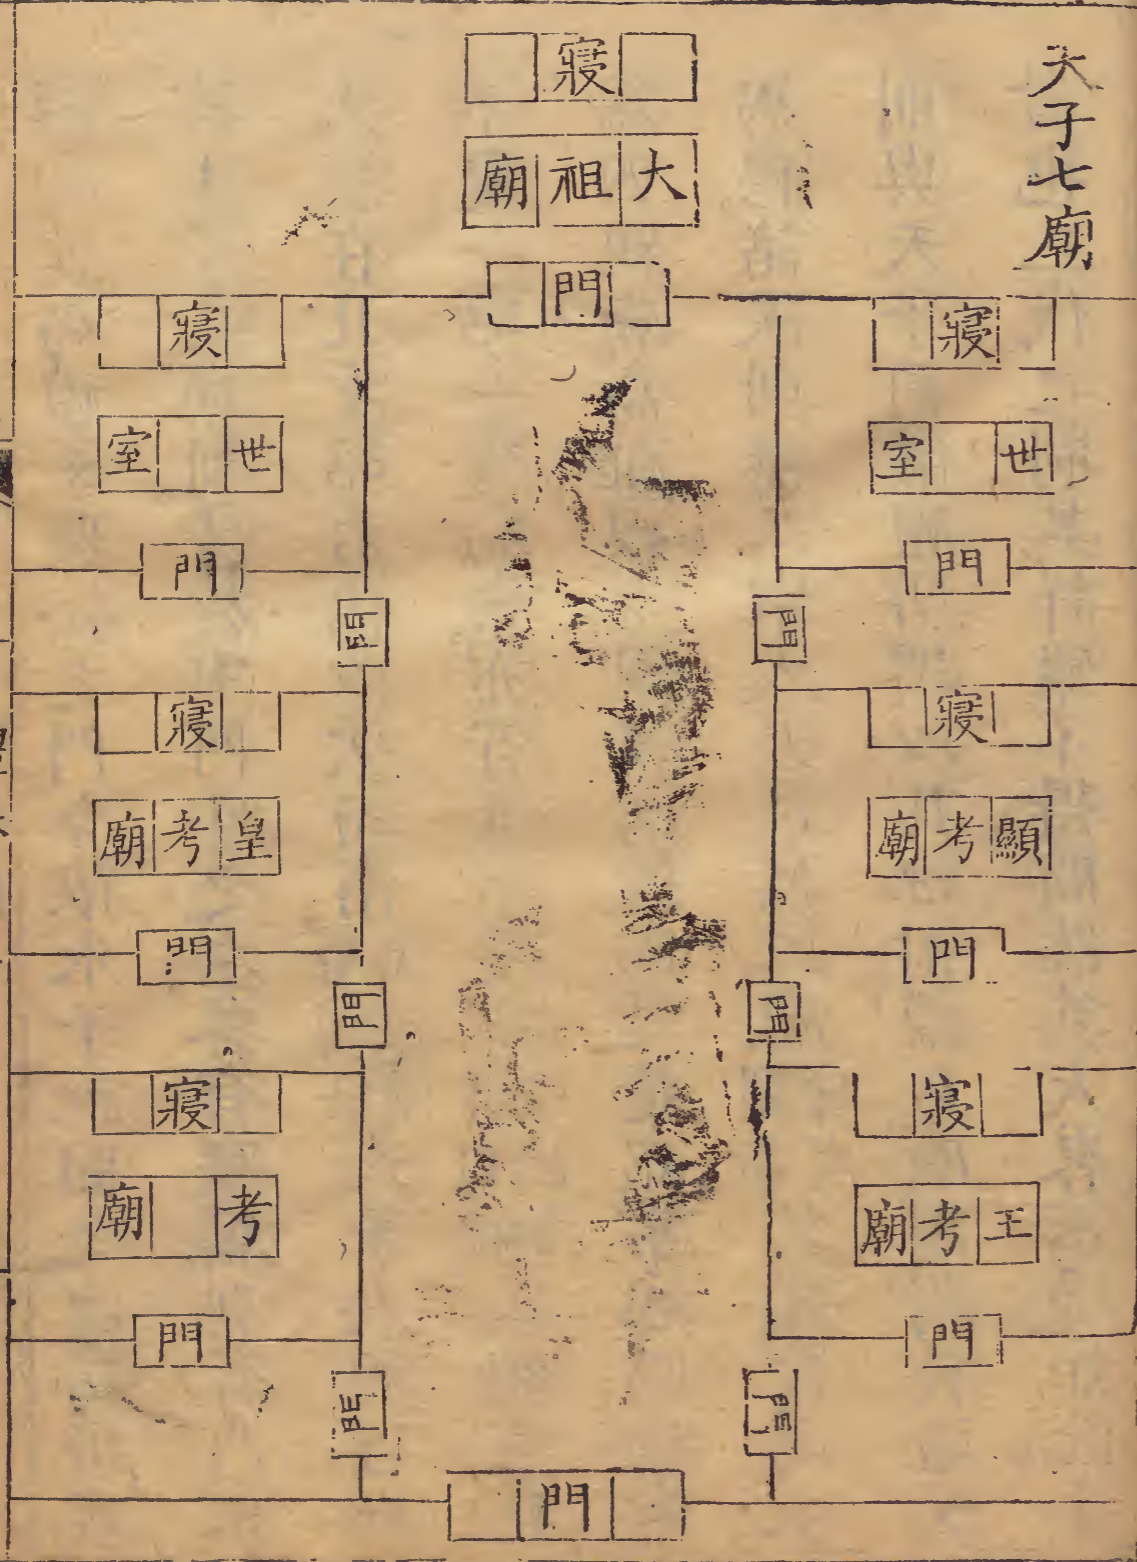 天子七廟
寢
大祖廟
門
寢
世室
門
門
寢
顯考廟
門
門
寢
王考廟
門
門
寢
世室
門
門
寢
皇考廟
門
門
寢
考廟
門
門
門